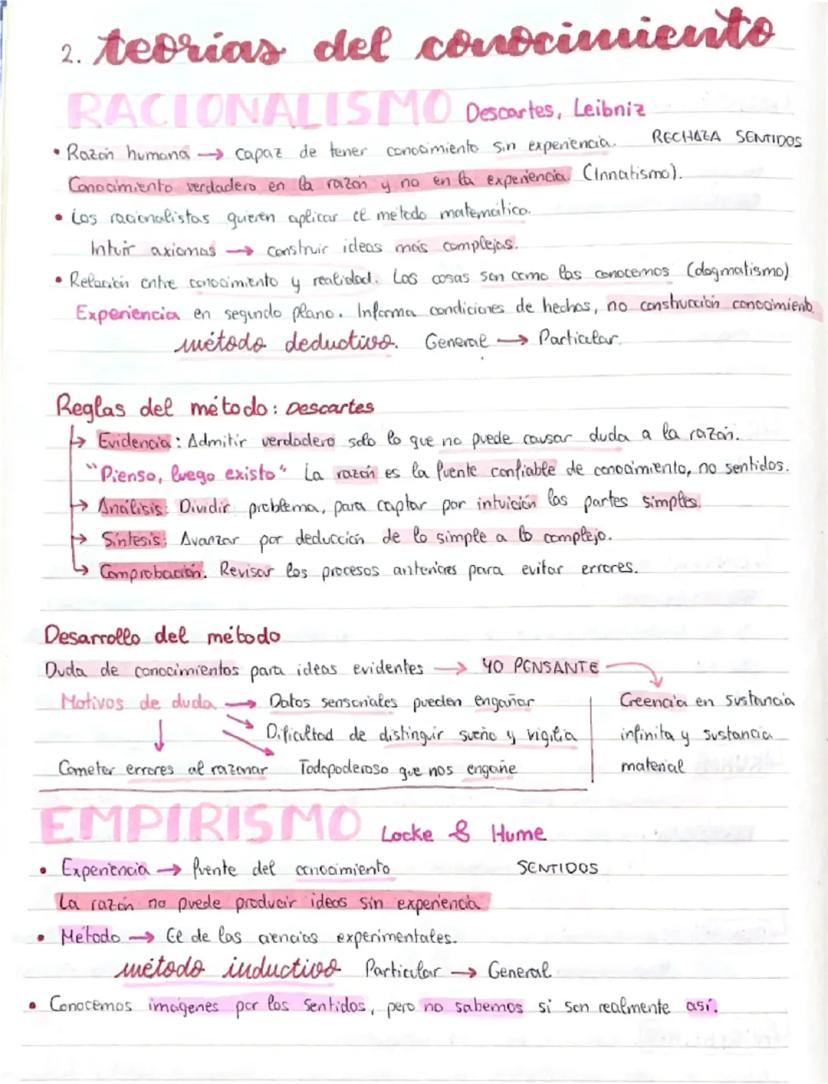 2. teorías del conocimiento
RACIONALISMO Descartes, Leibniz
• Razón humana → capaz de tener conocimiento sin experiencia. RECHAZA SENTIDOS
Conocimiento verdadero en la razón y no en la experiencia (Innatismo).
• Los racionalistas quieren aplicar el método matemático.
Intuir axiomas → construir ideas más complejas.
• Relación entre conocimiento y realidad. Las cosas son como las conocemos (dogmatismo)
Experiencia en segundo plano. Informa condiciones de hechos, no construcción conocimiento
método deductivo. General → Particular.
Reglas del método: Descartes
→ Evidencia: Admitir verdadero solo lo que no puede causar duda a la razón.
"Pienso, luego existo" La razón es la fuente confiable de conocimiento, no sentidos.
→ Análisis: Dividir problema, para captar por intuición las partes simples.
→ Síntesis: Avanzar por deducción de lo simple a lo complejo.
→ Comprobación. Revisar los procesos anteriores para evitar errores.
Desarrollo del método
Duda de conocimientos para ideas evidentes → YO PENSANTE
Motivos de duda → Datos sensoriales pueden engañar Creencia en sustancia
Dificultad de distinguir sueño y vigilia infinita y sustancia
Cometer errores al razonar Todopoderoso que nos engañe material
EMPIRISMO Locke & Hume
• Experiencia → fuente del conocimiento SENTIDOS
La razón no puede producir ideas sin experiencia
• Método → El de las ciencias experimentales.
método inductivo Particular → General
• Conocemos imágenes por los sentidos, pero no sabemos si son realmente así.